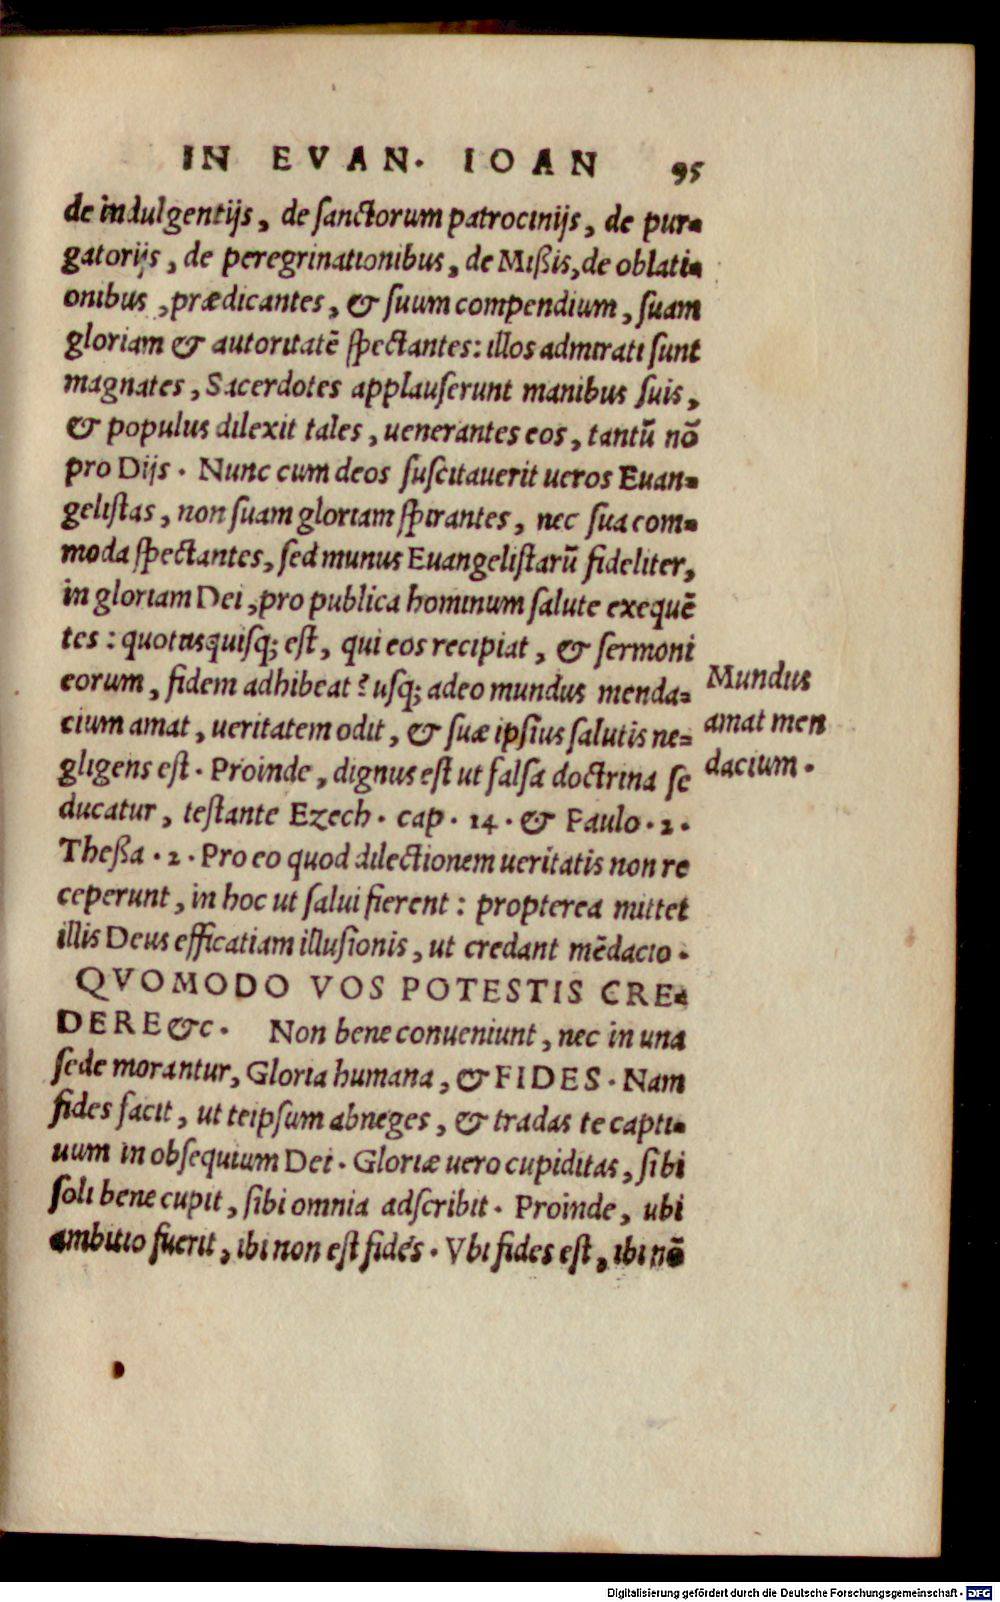 IN EVAN. IOAN 95
de indulgentijs, de sanctorum patrocinijs, de pur-
gatorijs, de peregrinationibus, de Mißis, de oblati-
onibus, prædicantes, & suum compendium, suam
gloriam & autoritatē spectantes: illos admirati sunt
magnates, Sacerdotes applauserunt manibus suis,
& populus dilexit tales, uenerantes eos, tantū nō
pro Dijs. Nunc cum deos suscitauerit ueros Euan-
gelistas, non suam gloriam spirantes, nec sua com-
moda spectantes, sed munus Euangelistarū fideliter,
in gloriam Dei, pro publica hominum salute exequē
tes: quotusquisq; est, qui eos recipiat, & sermoni
eorum, fidem adhibeat? usq; adeo mundus menda-
cium amat, ueritatem odit, & suæ ipsius salutis ne-
gligens est. Proinde, dignus est ut falsa doctrina se
ducatur, testante Ezech. cap. 14. & Paulo. 2.
Theßa. 2. Pro eo quod dilectionem ueritatis non re
ceperunt, in hoc ut salui fierent: propterea mittet
illis Deus efficatiam illusionis, ut credant mēdacio.
QVOMODO VOS POTESTIS CRE-
DERE &c. Non bene conueniunt, nec in una
sede morantur, Gloria humana, & FIDES. Nam
fides facit, ut teipsum abneges, & tradas te capti-
uum in obsequium Dei. Gloriæ uero cupiditas, sibi
soli bene cupit, sibi omnia adscribit. Proinde, ubi
ambitio fuerit, ibi non est fides. Vbi fides est, ibi nō
Mundus
amat men
dacium.
Digitalisierung gefördert durch die Deutsche Forschungsgemeinschaft - DFG